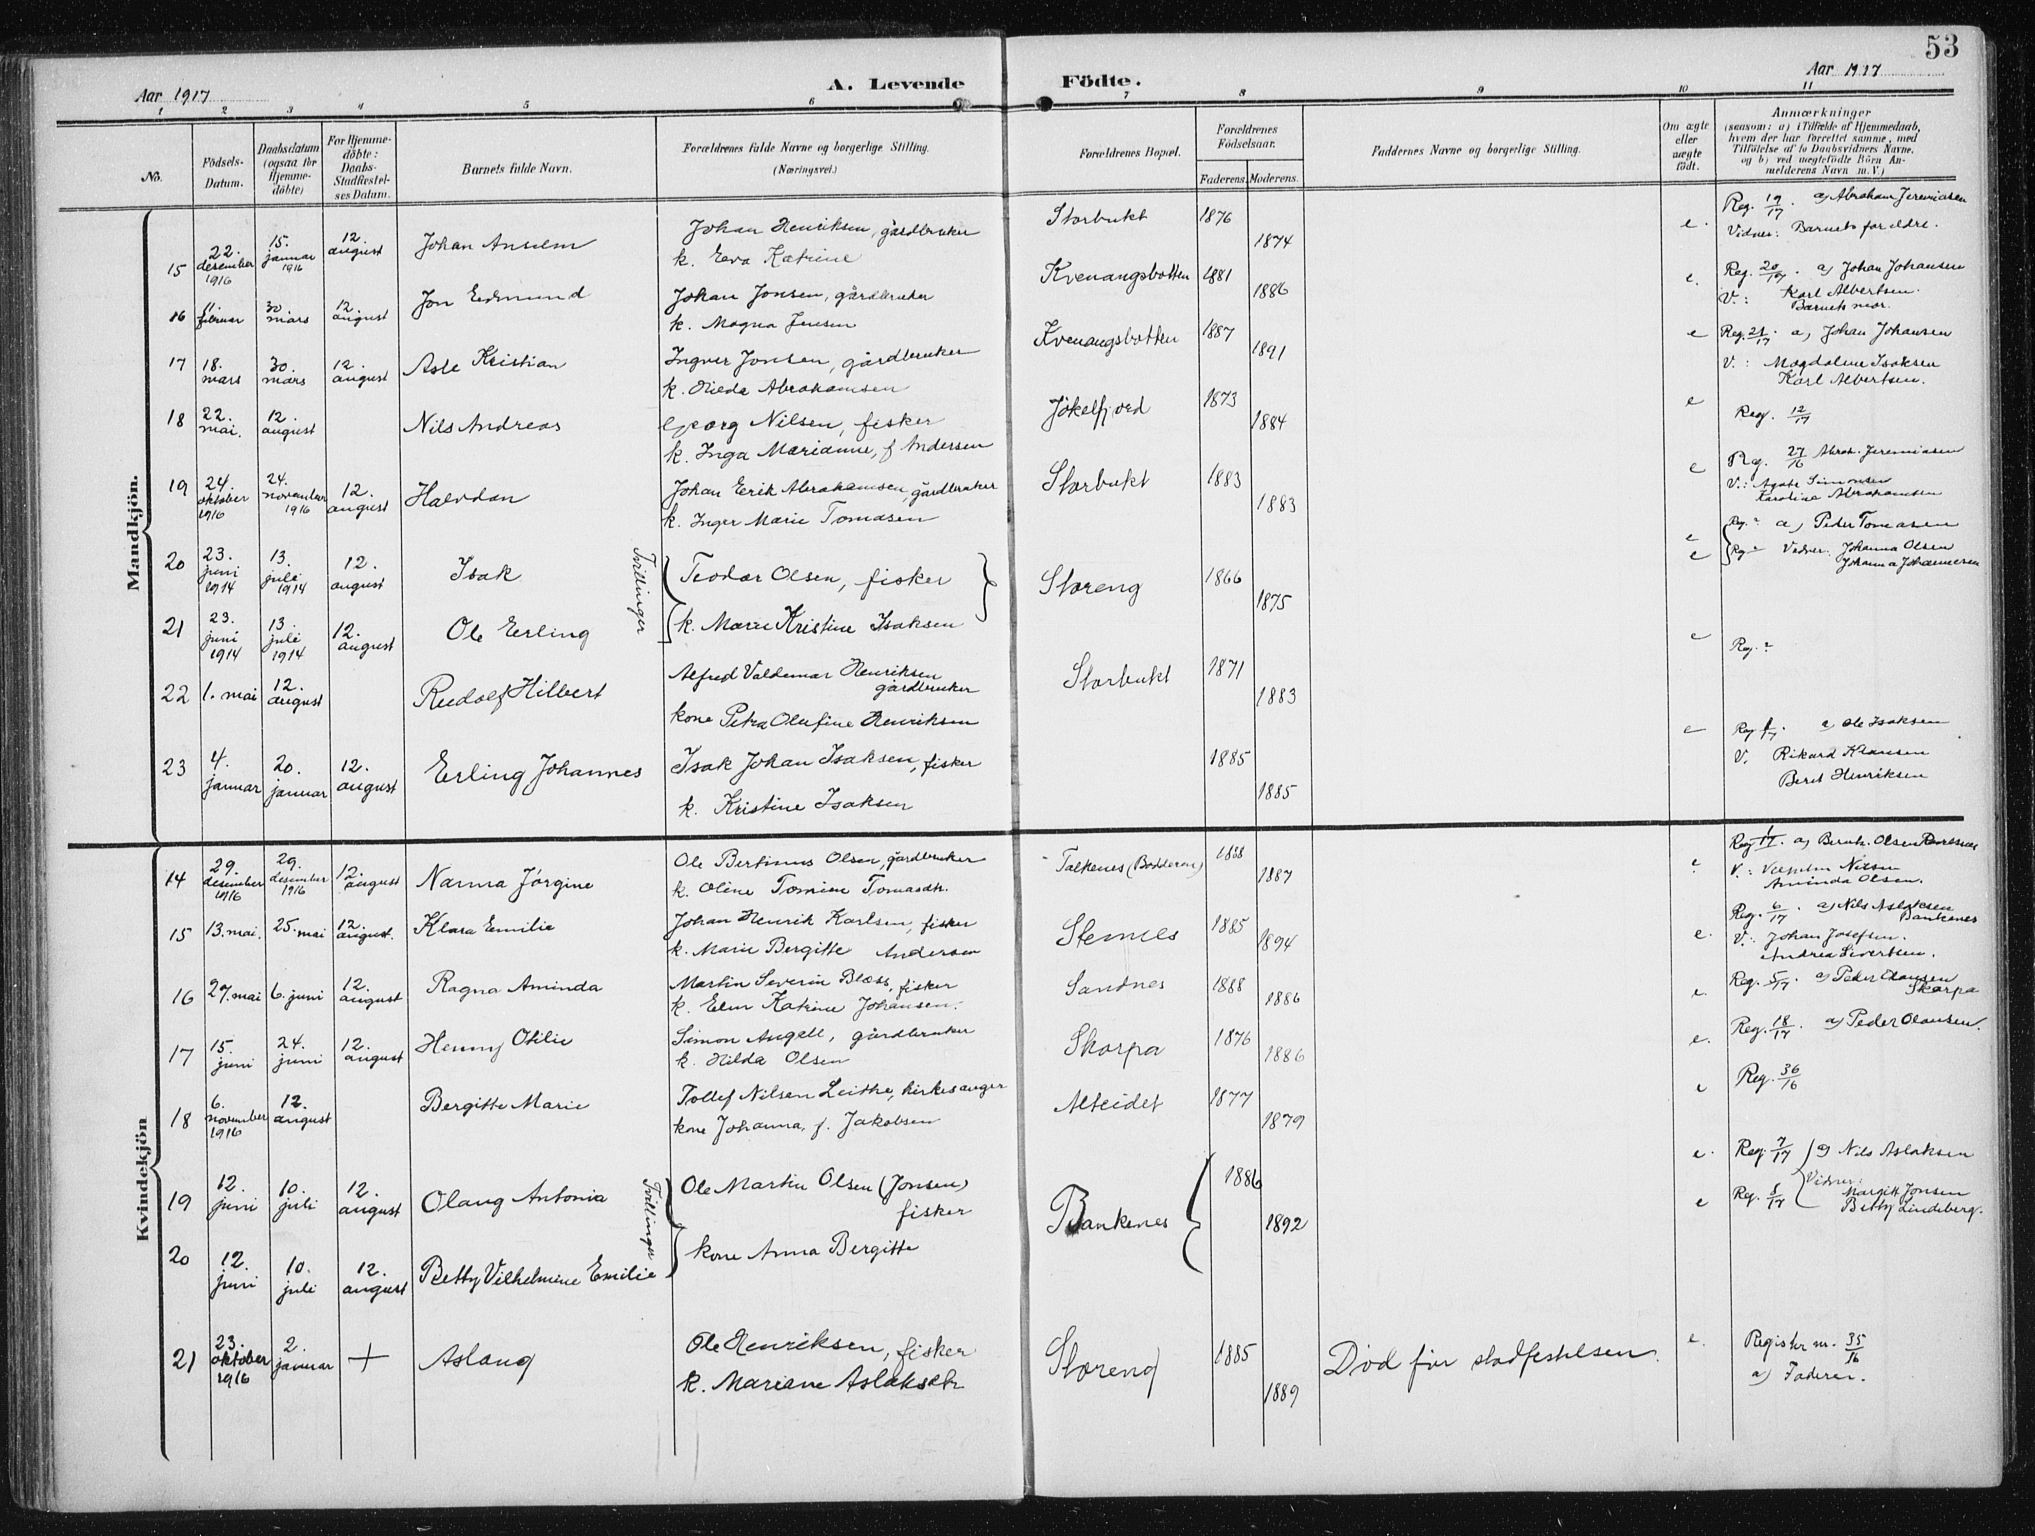 53
Aar 1917
A. Levende
Födte.
Aar 1917
1 2 3 4 5 6 7 8 9 10 11
No.
Födsels-
Datum.
Daabsdatum
(ogsaa for
Hjemme-
döbte)
For Hjemme-
döbte:
Daabs-
Stadfæstel-
ses Datum.
Barnets fulde Navn.
Forældrenes fulde Navne og borgerlige Stilling.
(Næringsvei.)
Forældrenes Bopæl.
Forældrenes
Födselsaar.
Faderens. Moderens.
Faddernes Navne og borgerlige Stilling.
Om ægte
eller
uægte
født.
Anmærkninger
(saasom: a) i Tilfælde af Hjemmedaab,
hvem der har forrettet samme, med
Tilföielse af to Daabsvidners Navne,
og b) ved uægtefödte Börn An-
melderens Navn m. V.)
Mandkjön.
15 22. desember 1916 15. januar 1916 12. august Johan Anselm Johan Henriksen, gårdbruker Storbukt 1876 e. Reg. 19/17 a) Abraham Jeremiasen
k. Eva Katrine 1874 Vidner: Barnets foreldre.
16 11. februar 30 mars 12. august Jon Edmund Johan Jonsen, gårdbruker Kvenangsbotten 1881 e. Reg. 20/17. a) Johan Johansen
k. Magna Jensen 1886 V.: Karl Albertsen.
Barnets mor.
17 18. mars 30. mars 12. august Asle Kristian Ingver Jonsen, gårdbruker Kvenangsbotten 1887 e Reg. 21/17. a) Johan Johansen
k. Abrahamsen 1891 V.: Magdalene Isaksen
Karl Albertsen.
18 22. mai. 12. august Nils Andreas Georg Nilsen, fisker Jökelfjord 1873 e Reg. 12/17
k. Inga Marianne, f Andersen 1884
19 24. oktober 1916 24. november 1916 12. august Halvdan Johan Erik Abrahamsen, gårdbruker Storbukt 1883 e Reg. 27/16 Abrah. Jeremiasen
k. Inger Marie Tomasen 1883 V.: Agate Simonsen
Karoline Abrahamsen
20 23. juni 1914 13. juli 1914 12. august Isak Tvillinger Teodor Olsen, fisker Storeng 1866 e Reg. ? a) Peder Tomasen
e Reg Vidner: Johanna Olsen
Johanna Johannesen
21 23. juni 1914 13. juli 1914 12. august Ole Erling k. Marie Kristine Isaksen 1875 e Reg. ?
22 1. mai 12. august Rudolf Hilbert Alfred Valdemar Henriksen Storbukt 1871
gårdbruker 1883
kone Petra Olufine Henriksen
23 4. januar 20. januar 12. august Erling Johannes Isak Johan Isaksen, fisker 1885 e Reg a) Ole Isaksen
k. Kristine Isaksen 1885 V. Rikard Klausen
Beret Henriksen
Kvindekjön
14 29. desember 1916 29. desember 1916 12. august Nanna Jørgine Ole Bertinus Olsen, gårdbruker Talkenes (Badderen) 1888 e Reg 1/17 a) Bernh. Olsen
k. Oline Tomine Tomasdtr. 1887 V.: Vilhelm Nilsen
Aminda Olsen.
15 13. mai. 25. mai 12. august. Klara Emilie Johan Henrik Karlsen, fisker Stennes 1885 e. Reg. 6/17. a) Nils Aslaksen
Bankenes
k. Marie Bergitte Andersen 1894 V.: Johan Josefsen.
Andrea Sivertsen.
16 27. mai 6. juni 12. august Ragna Aminda Martin Severin Blæss, fisker Sandnes 1888 e. Reg. 5/17. a) Peder Olausen
Skorpa
k. Elen Katrine Johansen. 1886
17 15. juni 24. juni 12. august Henny Otilie Simon Angell, gårdbruker Skorpa 1876 e. Reg. 18/17. a) Peder Olausen.
k. Hilda Olsen 1886
18 6. november 1916 12. august Bergitte Marie Tollef Nilsen Leithe, kirkesanger Alteidet 1877 e Reg. 36/16
kone Johanna, f. Jakobsen 1879
19 12. juni 10. juli 12. august Olaug Antonia Tvillinger Ole Martin Olsen (Jonsen) Bankenes 1886 e. Reg. 7/17 a) Nils Aslaksen
fisker 1892 Vidner:
20 12. juni 10. juli 12. august Betty Vilhelmine Emilie kone Anna Bergitte e Reg. 8/17 Margitt Jonsen
Betty Lindeberg.
21 23. oktober 1916 2. januar + Aslaug Ole Henriksen, fisker Storeng 1885 Död för stadfestelsen. e. Register nr. 35/16
k. Mariane Aslaksdtr 1889 a) Faderen.